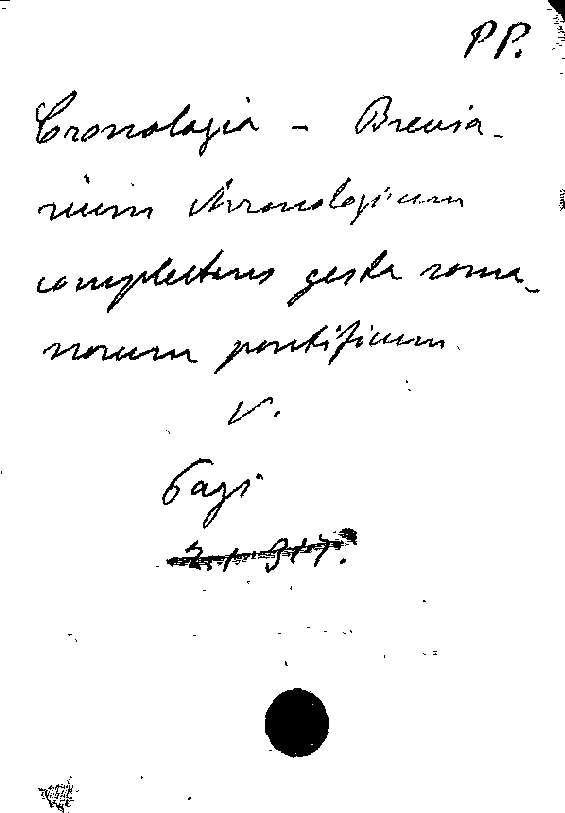 PP.
Cronologia - Brevia-
rium chronologicum
complectens gesta roma-
norum pontificum
V.
Pagi